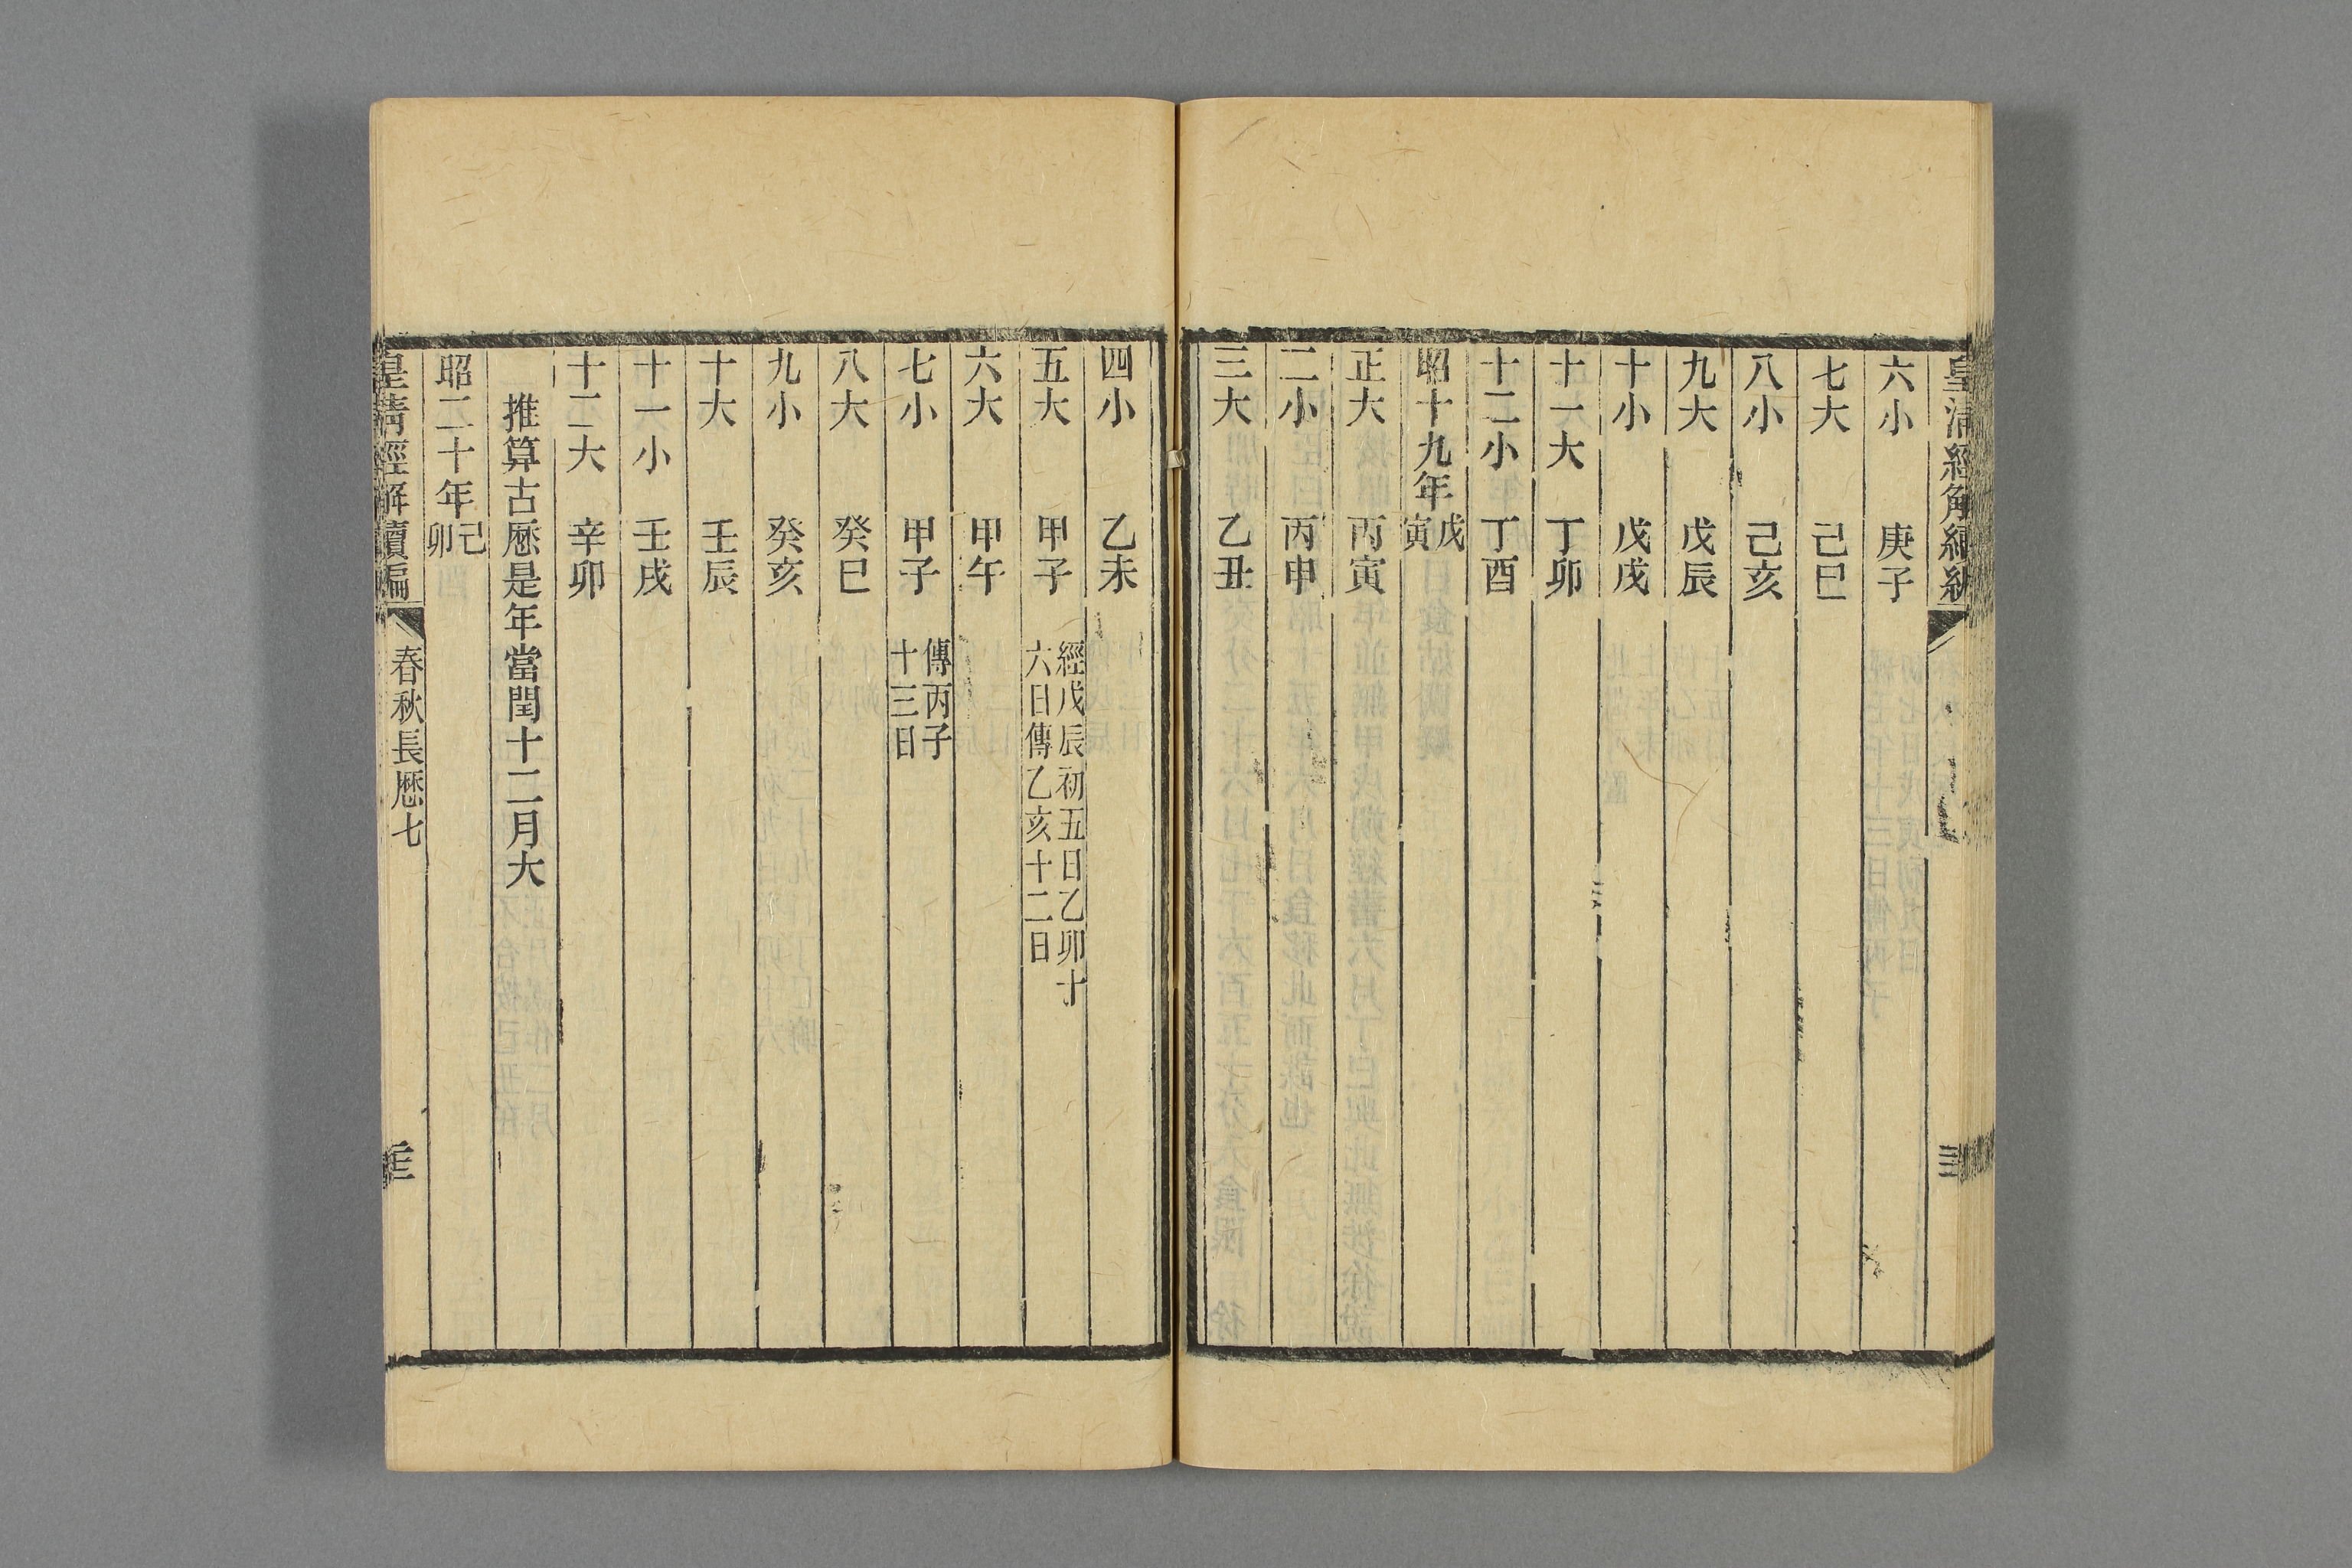 六小 庚子
七大 己巳
八小 己亥
九大 戊辰
十小 戊戌
十一大 丁卯
十二小 丁酉
昭十九年戊寅
正大 丙寅
二小 丙申
三大 乙丑
四小 乙未
五大 甲子 經戊辰初五日乙卯十
六日傳乙亥十二日
六大 甲午
七小 甲子 傳丙子
十三日
八大 癸巳
九小 癸亥
十大 壬辰
十一小 壬戌
十二大 辛卯
推算古厯是年當閏十二月大
昭二十年己卯
皇清經解續編 春秋長厯七